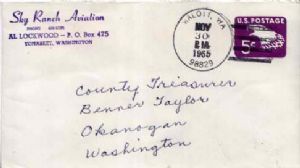 Sky Ranch Aviation
AL LOCKWOOD — P. O. Box 425
TONASKET, WASHINGTON
MALOTT, WA
NOV
30
1965
98829
U.S. POSTAGE
5¢
County Treasurer
Benner Taylor
Okanogan
Washington